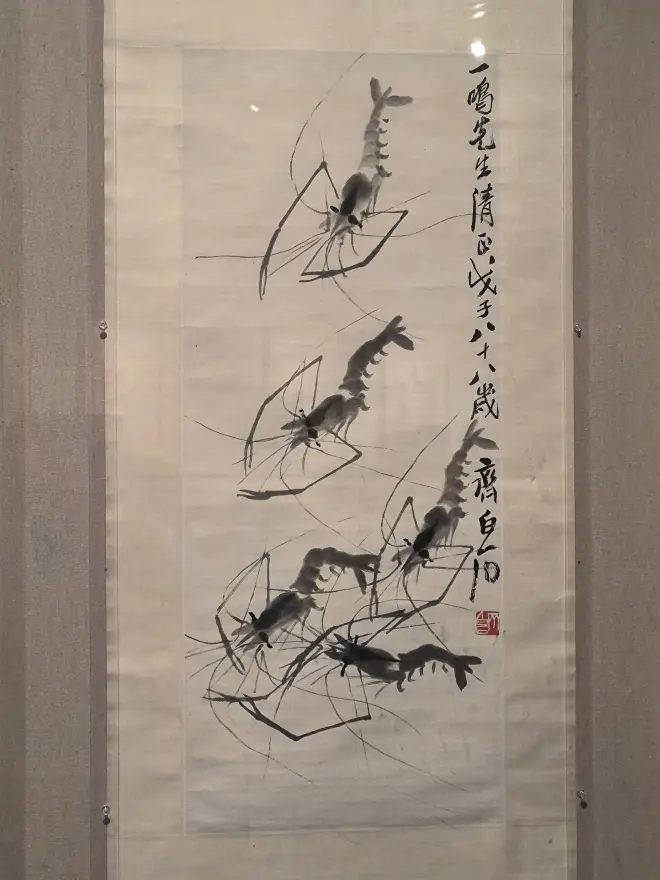 一鳴先生清正戊子八十八歲 齊白石